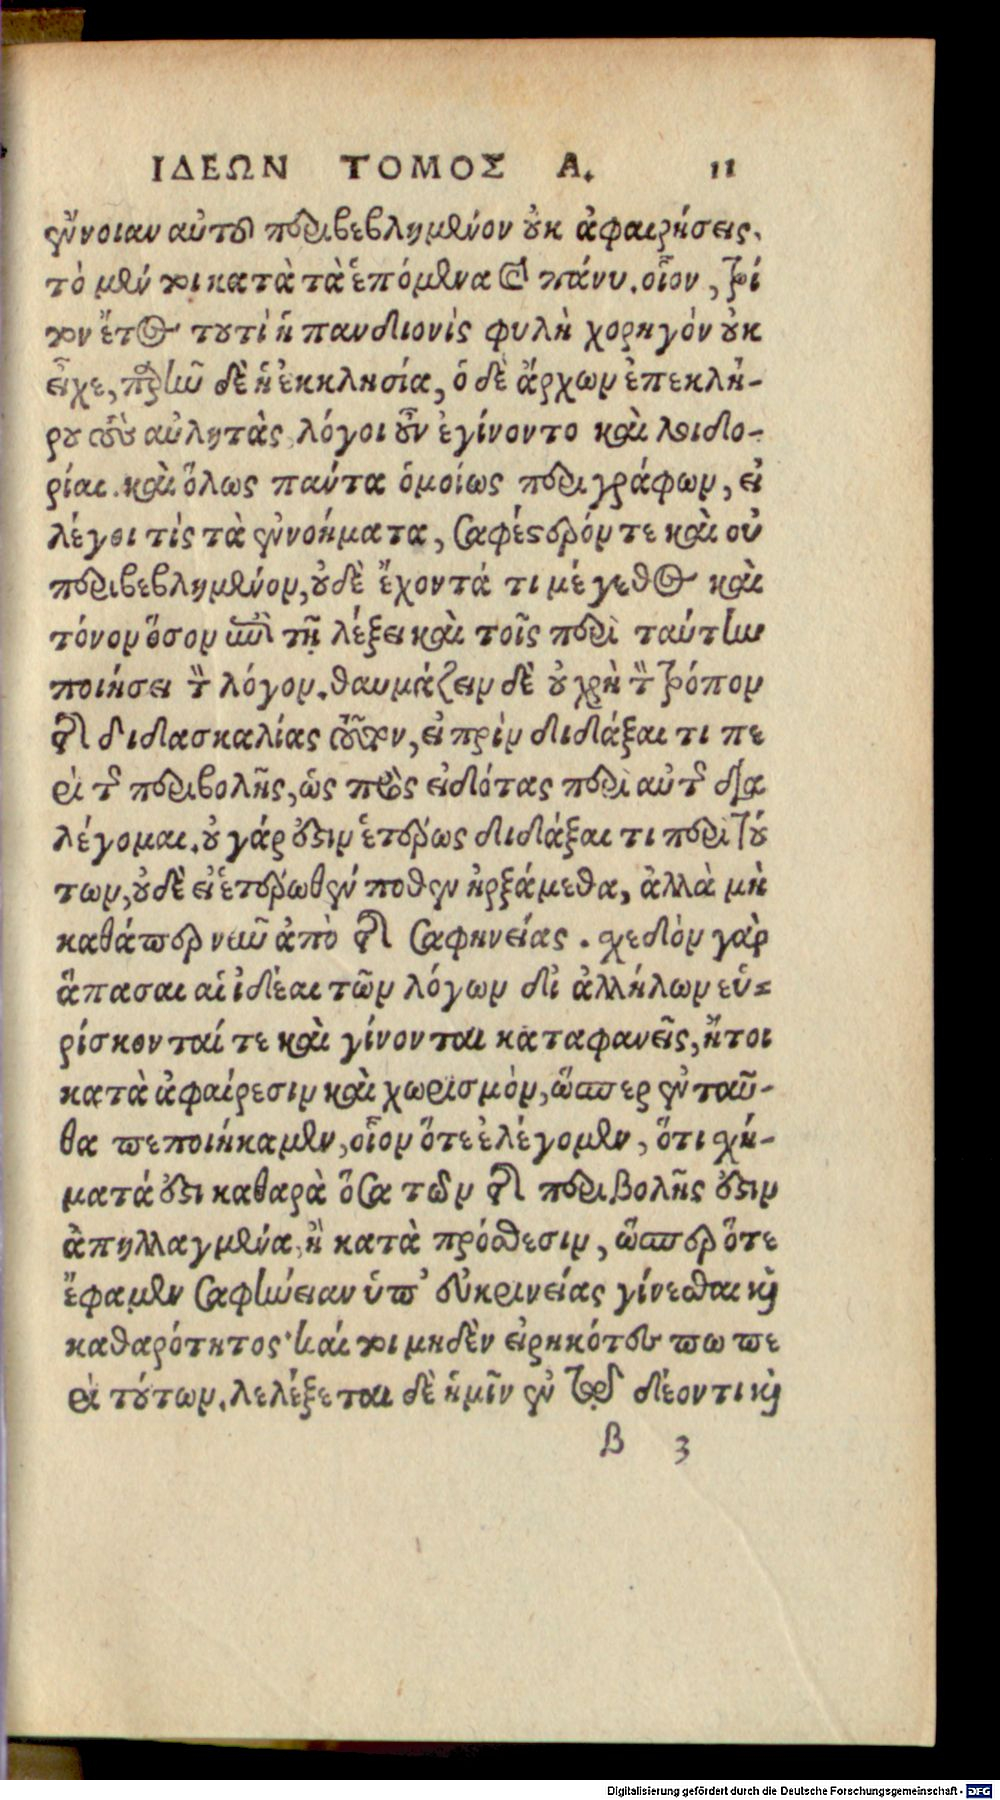 ΙΔΕΩΝ ΤΟΜΟΣ Α. 11
ἔννοιαν αὐτοῦ περιβεβλημένον οὐκ ἀφαιρήσεις.
τὸ μέν τοι κατὰ τὰ ἑπόμενα καὶ πάνυ. οἷον, τρί
τον ἔτος τουτὶ ἡ πανδιονὶς φυλὴ χορηγὸν οὐκ
εἶχε, παρῆν δὲ ἡ ἐκκλησία, ὁ δὲ ἄρχων ἐπεκλή-
ρου τοὺς αὐλητὰς, λόγοι οὖν ἐγίνοντο καὶ λοιδο-
ρίαι. καὶ ὅλως πάντα ὁμοίως περιγράφων, εἰ
λέγοι τίς τὰ ἐννοήματα, σαφέστερόν τε καὶ οὐ
περιβεβλημένον, οὐδὲ ἔχοντά τι μέγεθος καὶ
τόνον ὅσον ἐπὶ τῇ λέξει καὶ τοῖς περὶ ταύτην
ποιήσει τὸν λόγον. θαυμάζειν δὲ οὐ χρὴ τὸν τρόπον
τῆς διδασκαλίας τοῦτον, εἰ πρὶν διδάξαι τι πε
ρὶ τῆς περιβολῆς, ὡς πρὸς εἰδότας περὶ αὐτῆς δια
λέγομαι. οὐ γάρ ἐστιν ἑτέρως διδάξαι τι περὶ τού
των, οὐδὲ εἰ ἑτέρωθέν ποθεν ἠρξάμεθα, ἀλλὰ μὴ
καθάπερ νῦν ἀπὸ τῆς σαφηνείας. σχεδὸν γὰρ
ἅπασαι αἱ ἰδέαι τῶν λόγων δι ἀλλήλων εὑ-
ρίσκονταί τε καὶ γίνονται καταφανεῖς, ἤτοι
κατὰ ἀφαίρεσιν καὶ χωρισμὸν, ὥσπερ ἐνταῦ-
θα πεποιήκαμεν, οἷον ὅτε ἐλέγομεν, ὅτι σχή-
ματά ἐστι καθαρὰ ὅσα τῶν τῆς περιβολῆς ἐστιν
ἀπηλλαγμένα, ἢ κατὰ πρόσθεσιν, ὥσπερ ὅτε
ἔφαμεν σαφήνειαν ὑπ’ εὐκρινείας γίνεσθαι καὶ
καθαρότητος· καί τοι μηδὲν εἰρηκότες πω πε
ρὶ τούτων. λελέξεται δὲ ἡμῖν ἐν τῷ δέοντι καὶ
B 3
Digitalisierung gefördert durch die Deutsche Forschungsgemeinschaft - DFG